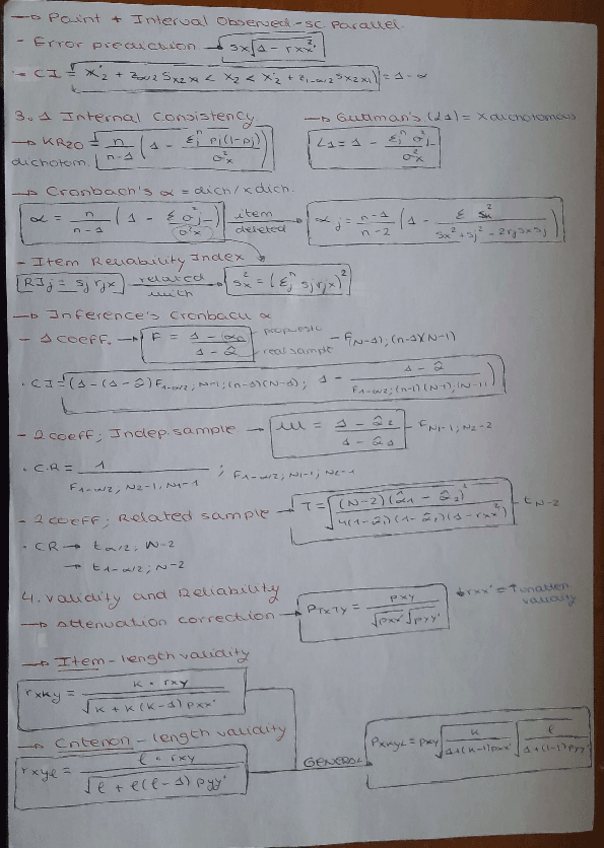 → Point + Interval Observed-sc Parallel.
- Error prediction → Sx√1 - rxx'²
- CI = X'2 + Zα/2 Sx2x1 < X2 < X'2 + Z1-α/2 Sx2x1 = 1 - α
3.1 Internal Consistency → Guttman's (L1) = x dichotomous
→ KR20 = n/n-1 (1 - Σjⁿ pj(1-pj)/σ²x) L1 = 1 - Σjⁿ σ²j/σ²x
dichotom.
→ Cronbach's α = dich/x dich.
α = n/n-1 (1 - Σ σ²j/σ²x) item deleted → αj = n-1/n-2 (1 - Σ Sh²/Sx² + Sj² - 2rjx Sx Sj)
- Item Reliability Index
RIj = Sj rjx related with → S²x = (Σjⁿ Sj rjx)²
→ Inference's Cronbach α
- 1 coeff. → F = 1 - α0/1 - α̂ - FN-1; (n-1)(N-1)
real sample
· CI = (1-(1-α̂) F1-α/2; N-1; (n-1)(N-1); 1 - 1-α̂/F1-α/2; (n-1)(N-1); (N-1))
- 2 coeff; Indep. sample → w = 1 - α̂2/1 - α̂1 - FN1-1; N2-2
· C.R = 1/F1-α/2; N2-1, N1-1 ; F1-α/2; N1-1; N2-1
- 2 coeff; Related sample → T = √(N-2)(α̂1 - α̂2)²/4(1-α̂1)(1-α̂2)(1-rxx'²) - tN-2
· CR → tα/2; N-2
→ t1-α/2; N-2
4. Validity and Reliability
→ Attenuation correction → PTxTy = Pxy/√Pxx' √Pyy' ↓rxx' = ↑unatten validity
→ Item-length validity
rxky = k · rxy/√k + k(k-1) Pxx'
→ Criterion-length validity
rxyl = l · rxy/√l + l(l-1) Pyy' GENERAL Pxkyl = Pxy √k/1+(k-1)Pxx' √l/1+(l-1)Pyy'